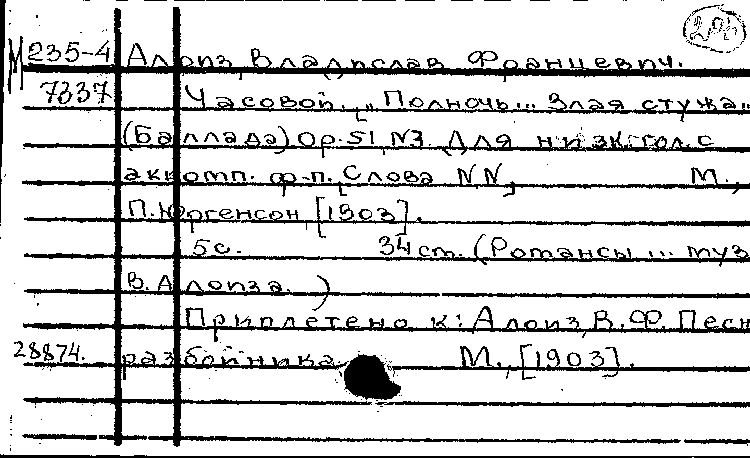 М 235-4 Алоиз, Владислав Францевич.
7337 Часовой. „Полночь... Злая стужа..
(Баллада) Op. 51, N3. Для низк. гол. с
аккомп. ф-п. [Слова NN], М.,
П. Юргенсон, [1903].
5 с. 34 ст. (Романсы ... муз
В. Алоиза.)
Приплетено к: Алоиз, В. Ф. Песн
28874. разбойника М., [1903].